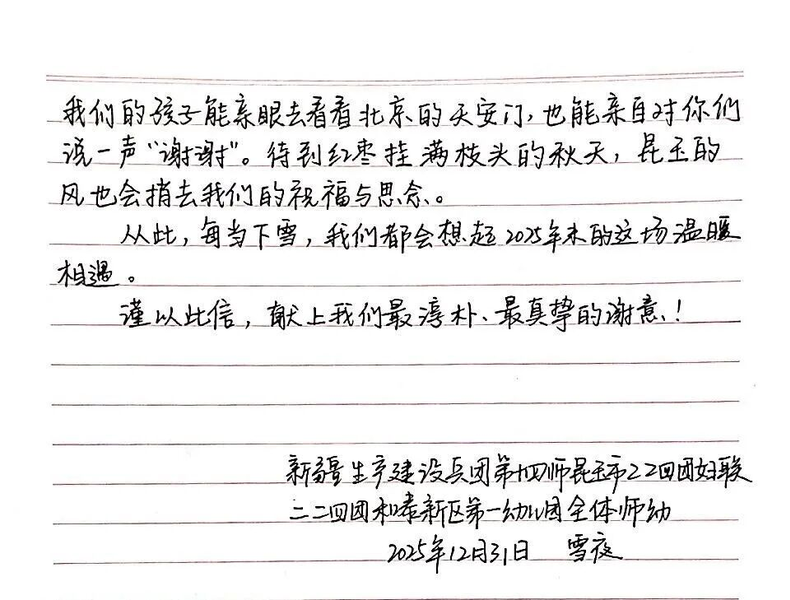 我们的孩子能亲眼去看看北京的天安门，也能亲自对你们
说一声“谢谢”。待到红枣挂满枝头的秋天，昆玉的
风也会捎去我们的祝福与思念。
从此，每当下雪，我们都会想起2025年末的这场温暖
相遇。
谨以此信，献上我们最淳朴、最真挚的谢意！
新疆生产建设兵团第十四师昆玉市224团妇联
二二四团和泰新区第一幼儿园全体师幼
2025年12月31日 雪夜